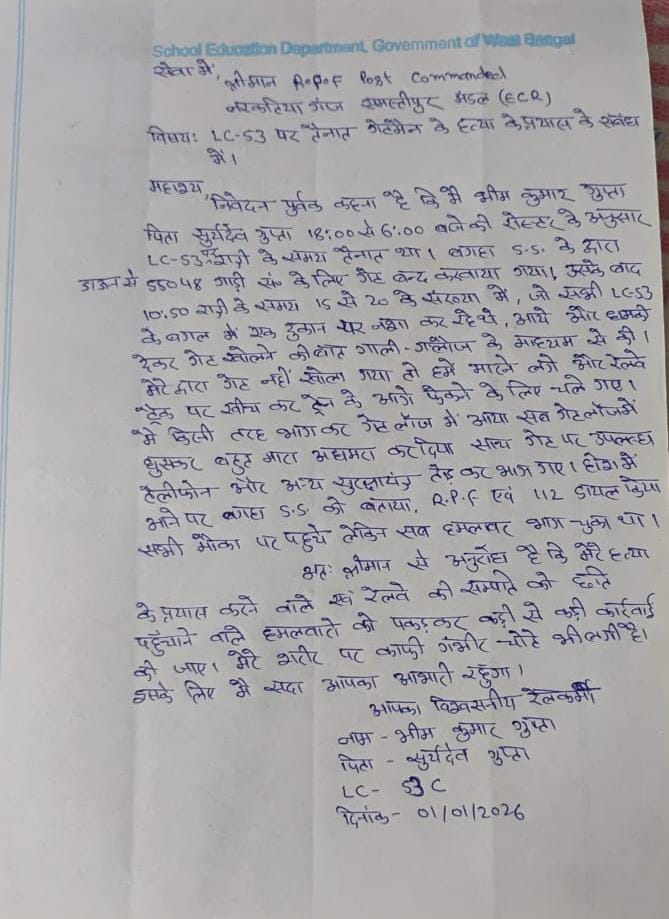 School Education Department, Government of West Bengal
सेवा में,
श्रीमान R.P.F Post Commanded
नरकटियागंज समस्तीपुर मंडल (ECR)
विषय: LC-53 पर तैनात गेटमैन के हत्या के प्रयास के संबंध
में।
महाशय,
निवेदन पूर्वक कहना है कि मैं भीम कुमार गुप्ता
पिता सुर्यदेव गुप्ता 18:00 से 6:00 बजे की रोस्टर के अनुसार
LC-53 पर के समय तैनात था। बगहा S.S. के द्वारा
डाउन से 55048 गाड़ी सं० के लिए गेट बन्द करवाया गया। उसके बाद
10:50 रात्री के समय 15 से 20 के संख्या में, जो सभी LC-53
के बगल में एक दुकान पर नशा कर रहे थे, आये और धमकी
देकर गेट खोलने की बात गाली-गलौज के माध्यम से की।
मेरे द्वारा गेट नहीं खोला गया तो हमें मारने लगे और रेलवे
ट्रैक पर खीच कर ट्रेन के आगे फेंकने के लिए चले गए।
मैं किसी तरह भाग कर गेट लॉज में आया सब गेट लॉज में
घुसकर बहुत मारा अधमरा कर दिया साथ गेट पर उपलब्ध
टेलीफोन और अन्य सुरक्षायंत्र तोड़ कर भाग गए। होश में
आने पर बगहा S.S. को बताया, R.P.F एवं 112 डायल किया
सभी मौका पर पहुचे लेकिन सब हमलावर भाग चुका था।
अतः श्रीमान से अनुरोध है कि मेरे हत्या
के प्रयास करने वाले एवं रेलवे की सम्पति को छति
पहुँचाने वाले हमलवारों को पकड़कर कड़ी से कड़ी कार्रवाई
की जाए। मेरे शरीर पर काफी गंभीर चोटे भी लगी है।
इसके लिए मैं सदा आपका आभारी रहुँगा।
आपका विश्वसनीय रेलकर्मी
नाम - भीम कुमार गुप्ता
पिता - सुर्यदेव गुप्ता
LC- 53 C
दिनांक- 01/01/2026